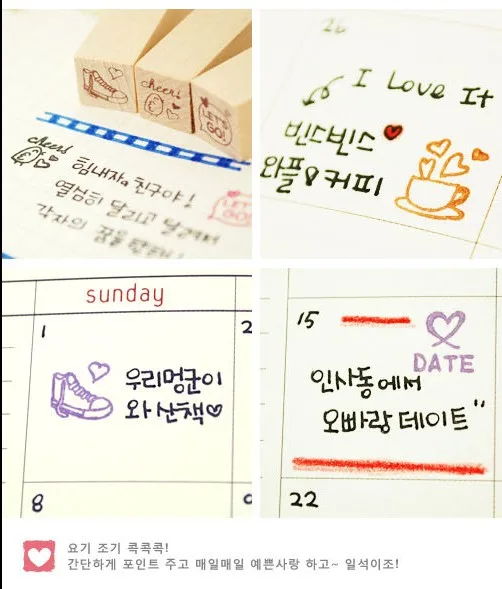 cheers!
LET'S GO!
cheers
힘내자 친구야!
열심히 달리고 달려서
각자의 꿈을
LET'S GO!
26
I Love It
빈스빈스
와플&커피
sunday
1
2
우리멍균이
와 산책♡
8
15
DATE
인사동에서
오빠랑 데이트"
22
요기 조기 콕콕콕!
간단하게 포인트 주고 매일매일 예쁜사랑 하고~ 일석이조!